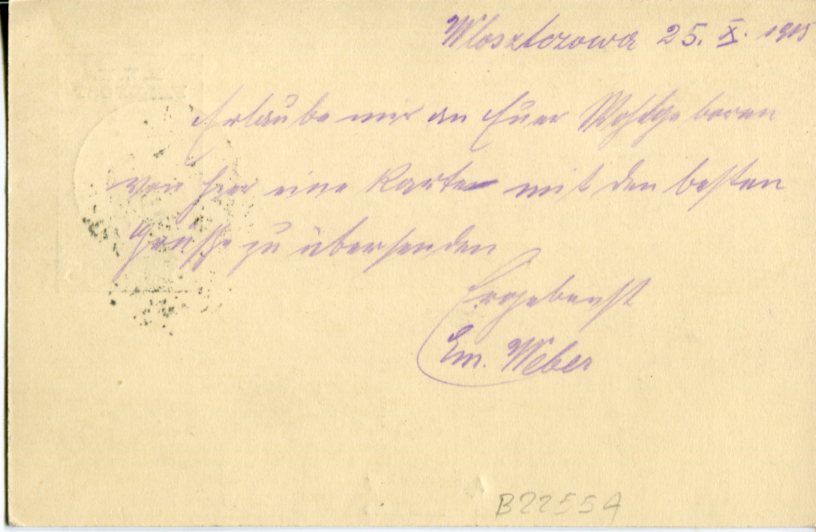 Wloszczowa 25. X. 1915
Erlaube mir an Euer Wohlgeboren
von hier eine Karte mit den besten
Grüsse zu übersenden
Ergebenst
Em. Weber
B22554